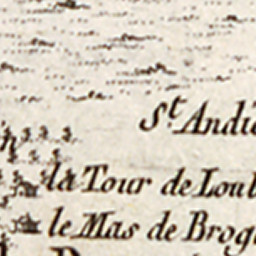 St Andi
la Tour de Loul
le Mas de Brog